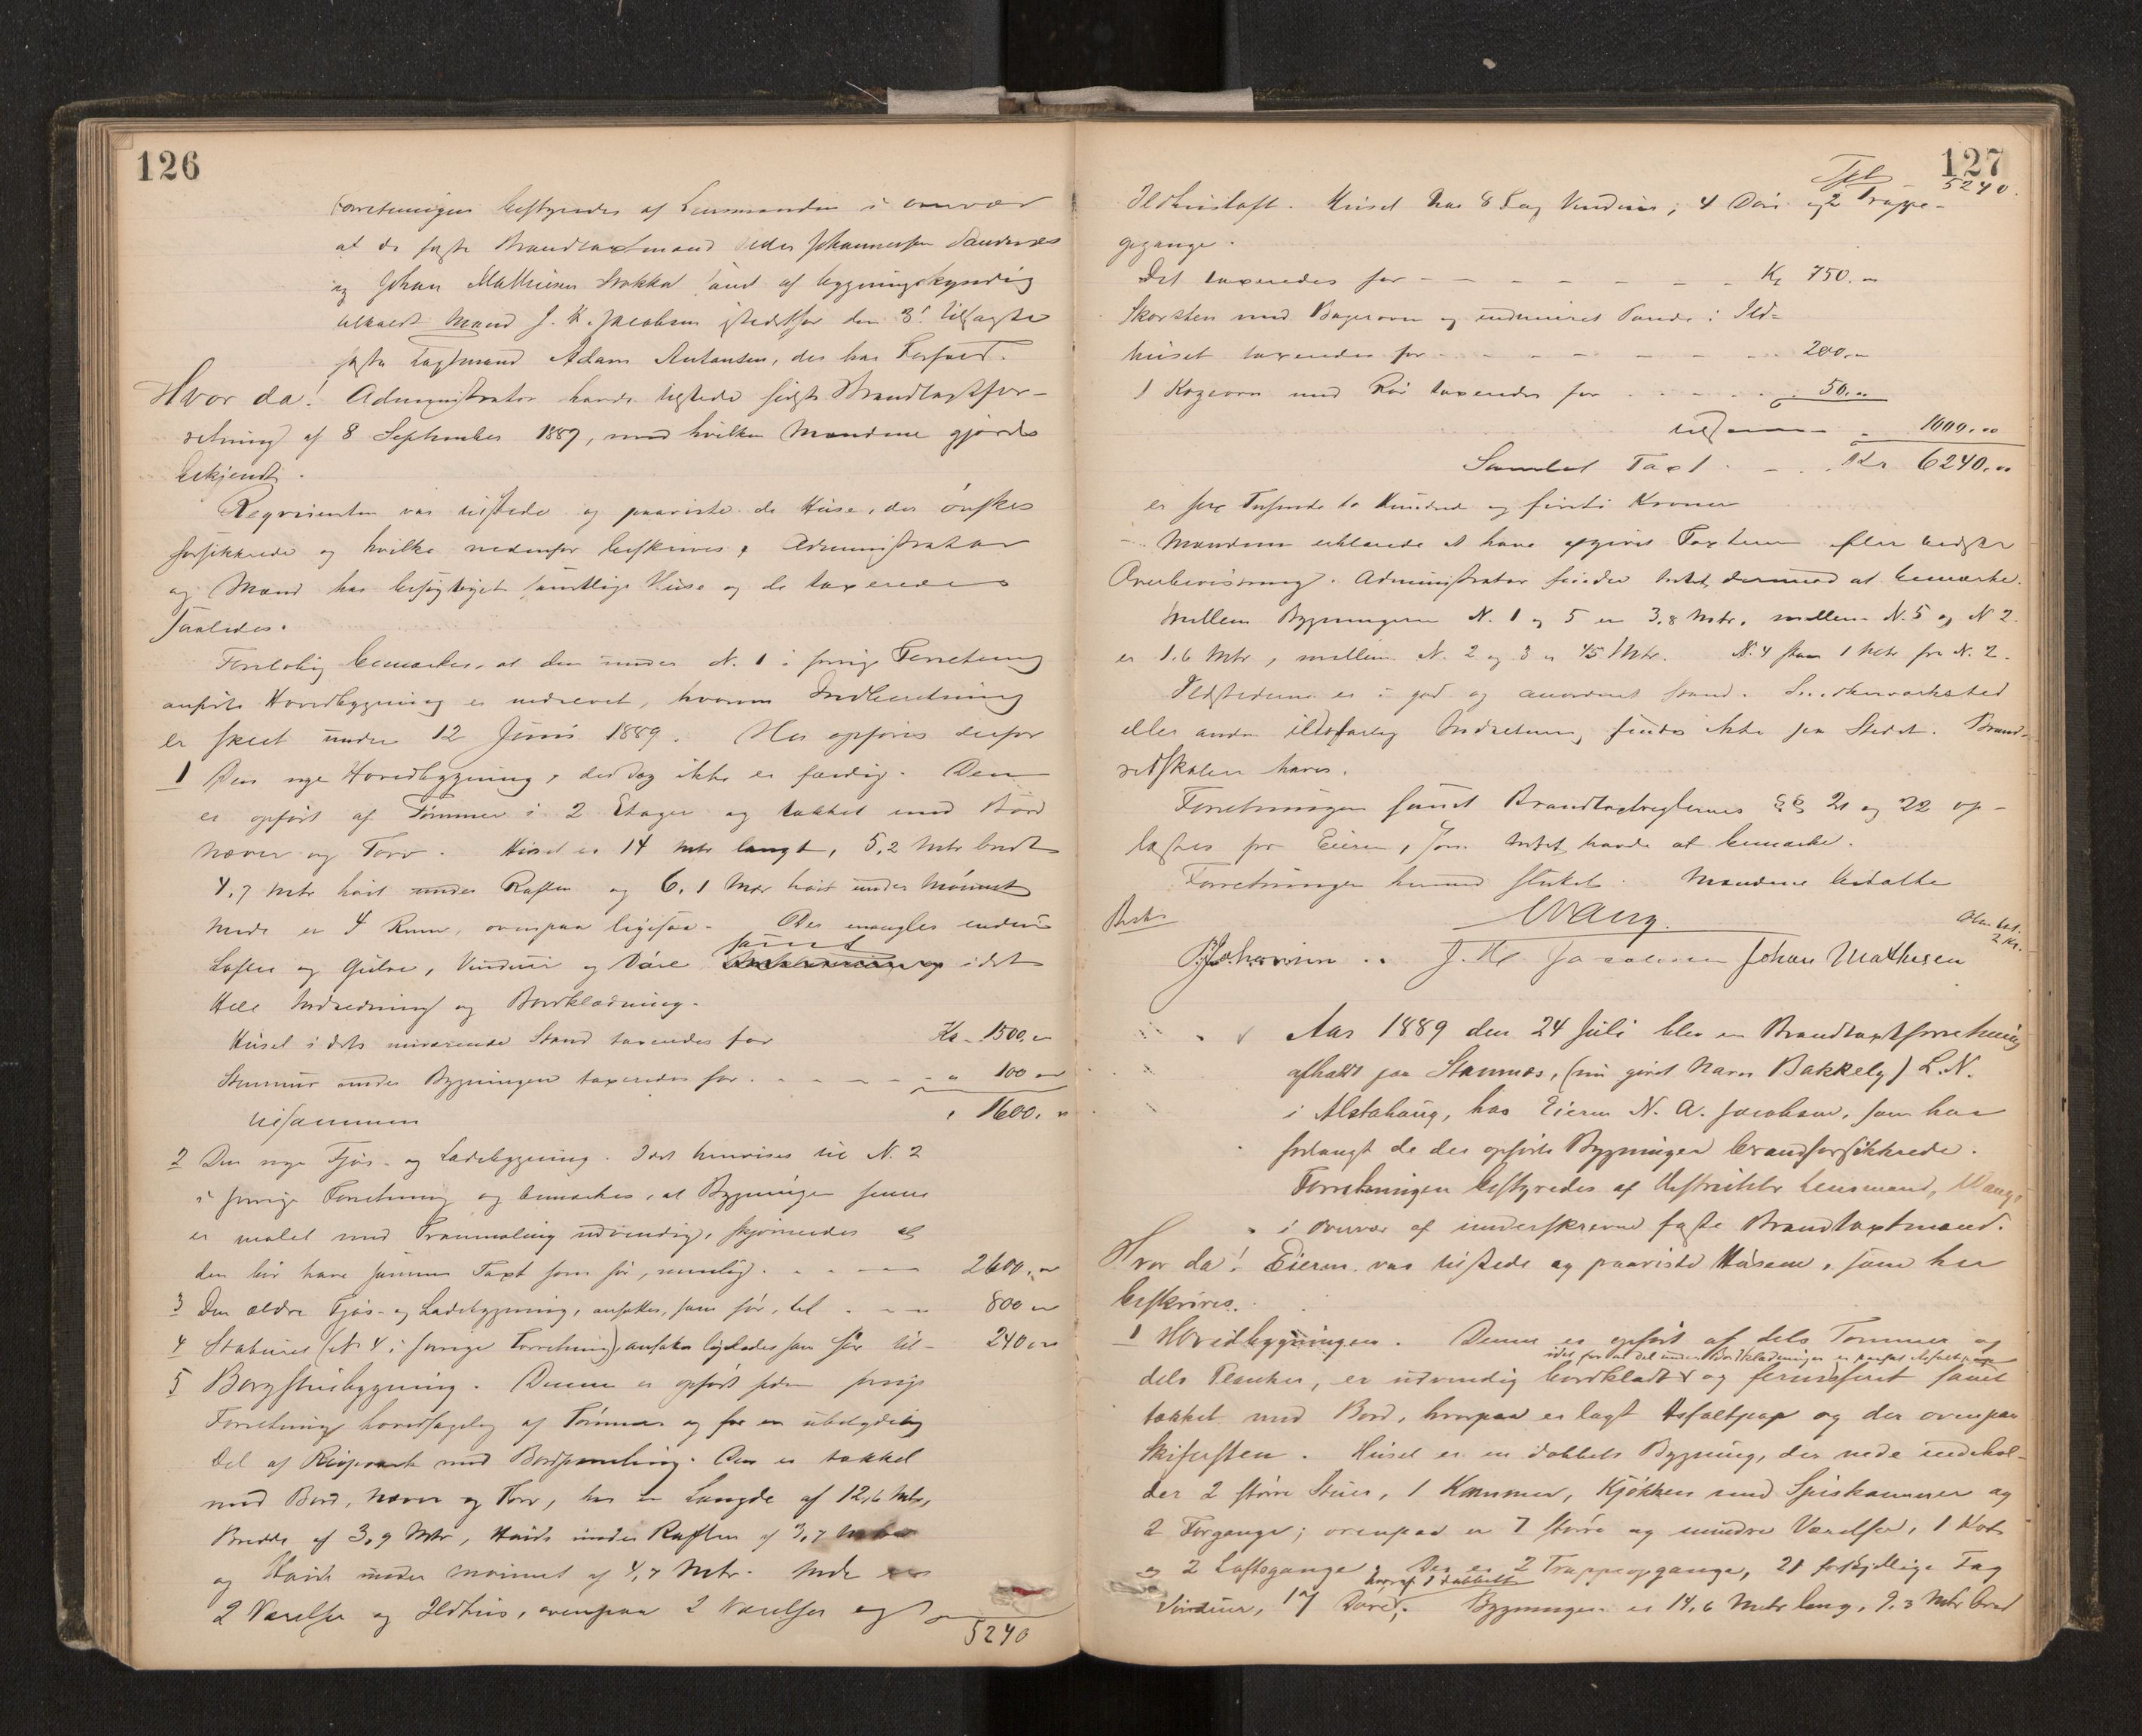 126
Forretningen bestyredes af Lensmanden i overvær
af de faste Brandtaxtmænd Peder Johannessen Sandnes
og Johan Mathisen Stokka samt af bygningskyndig
tilkaldt Mand J. K. Jacobsen istedetfor den 3die tilsagte
faste Taxtmand Adam Antonsen, der har Forfald.
Hvor da! Administrator havde tilstede sidste Brandtaxtfor-
retning af 8 September 1887, med hvilken Mændene gjordes
bekjendt.
Reqvirenten var tilstede og paaviste de Huse, der ønskes
forsikkrede og hvilke nedenfor beskrives. Administrator
og Mænd har besigtiget samtlige Huse og de taxeredes
saaledes.
Foreløbig bemærkes, at den under N. 1 i forrige Forretning
anførte Hovedbygning er nedrevet, hvorom Indberetning
er skeet under 12 Juni 1889. Her opføres derfor
1 Den nye Hovedbygning, der dog ikke er færdig. Den
er opført af Tømmer i 2 Etager og tækket med Bord
Næver og Torv. Huset er 14 Mtr langt, 5,2 Mtr bredt
4,7 Mtr høit under Raften og 6,1 Mtr høit under Mønnet
Nede er 4 Rum, ovenpaa ligesaa. Der mangles endnu
Lofter og Gulve, Vinduer og Døre samt idet
Hele Indredning og Bordklædning.
Huset i dets nuværende Stand taxeredes for Kr. 1500,00
Stenmur under Bygningen taxeredes for - - - - - " 100 00
tilsammen " 1600,00
2 Den nye Fjøs- og Ladebygning. Idet henvises til N. 2
i forrige Forretning og bemærkes, at Bygningen senere
er malet med Tranmaling udvendig, skjønnedes at
den bør have samme Taxt som før, nemlig - - - - 2600,00
3 Den ældre Fjøs- og Ladebygning, ansattes, som før, til - - - 800 00
4 Staburet (N 4 i forrige Forretning) ansattes ligeledes som før til - 240 00
5 Borgstuebygning. Denne er opført siden forrige
Forretning hovedsagelig af Tømmer og for en ubetydelig
Del af Reisverk med Bordpaneling. Den er tækket
med Bord, Næver og Torv, har en Længde af 12,6 Mtr,
Bredde af 3,9 Mtr, Høide under Raften af 3,7 Meter
og Høide under Mønnet af 4,7 Mtr. Nede er
2 Værelser og Ildhus, ovenpaa 2 Værelser og
5240
127
Tpt 5240.
Ildhusloft. Huset har 8 Fag Vinduer, 4 Døre og 2 Trappe-
gange.
Det taxeredes for - - - - - - - - Kr 750.00
Skorsten med Bagerovn og indmuret Pande i Ild-
huset taxeredes for - - - - - - - 200,00
1 Kogeovn med Rør taxeredes for - - - - - 50.00
tilsammen - 1000.00
Samlet Taxt - - Kr 6240.00
er sex Tusende to Hundrede og firti Kroner
Mændene erklærede at have afgivet Taxten efter bedste
Overbevisning. Administrator finder Intet dermed at bemærke.
Mellem Bygningerne N. 1 og 5 er 3,8 Mtr, mellem N. 5 og N 2.
er 1.6 Mtr, mellem N. 2 og 3 er 45 Mtr. N. 4 staar 1 Mtr fra N. 2.
Ildstederne er i god og anordnet Stand. Snedkerværksted
eller anden ildsfarlig Indretning findes ikke paa Stedet. Brand-
redskaber haves.
Forretningen samt Brandtaxtreglernes §§ 21 og 22 op-
læstes for Eieren, som Intet havde at bemærke.
Forretningen hermed sluttet. Mændene betalte
Besk Wang.
2 Kr.
P Johannesen J. K Jacobsen Johan Mathisen
Aar 1889 den 24 Juli blev en Brandtaxtforretning
afholdt paa Stamnes, (nu givet Navn Bakkely) L. N.
i Alstahaug, hos Eieren N. A. Jacobsen, som har
forlangt de der opførte Bygninger brandforsikkrede.
Forretningen bestyredes af Distriktets Lensmand, Wang,
i overvær af underskrevne faste Brandtaxtmænd.
Hvor da! Eieren var tilstede og paaviste Husene, som her
beskrives.
1 Hovedbygningen. Denne er opført af dels Tømmer og
idet for en del under Bordklædningen er paasat Asfaltpap
dels Planker, er udvendig bordklædt og fernisseret samt
tækket med Bord, hvorpaa er lagt Asfaltpap og der ovenpaa
Skifersten. Huset er en dobbelt Bygning, der nede indehol-
der 2 større Stuer, 1 Kammer, Kjøkken med Spiskammer og
2 Forgange; ovenpaa er 7 større og mindre Værelser, 1 Kot
og 2 Loftsgange. Der er 2 Trappeopgange, 21 forskjellige Fag
hvoraf 1 dobbelt
Vinduer, 17 Døre, Bygningen er 14,6 Mtr lang, 9,3 Mtr bred